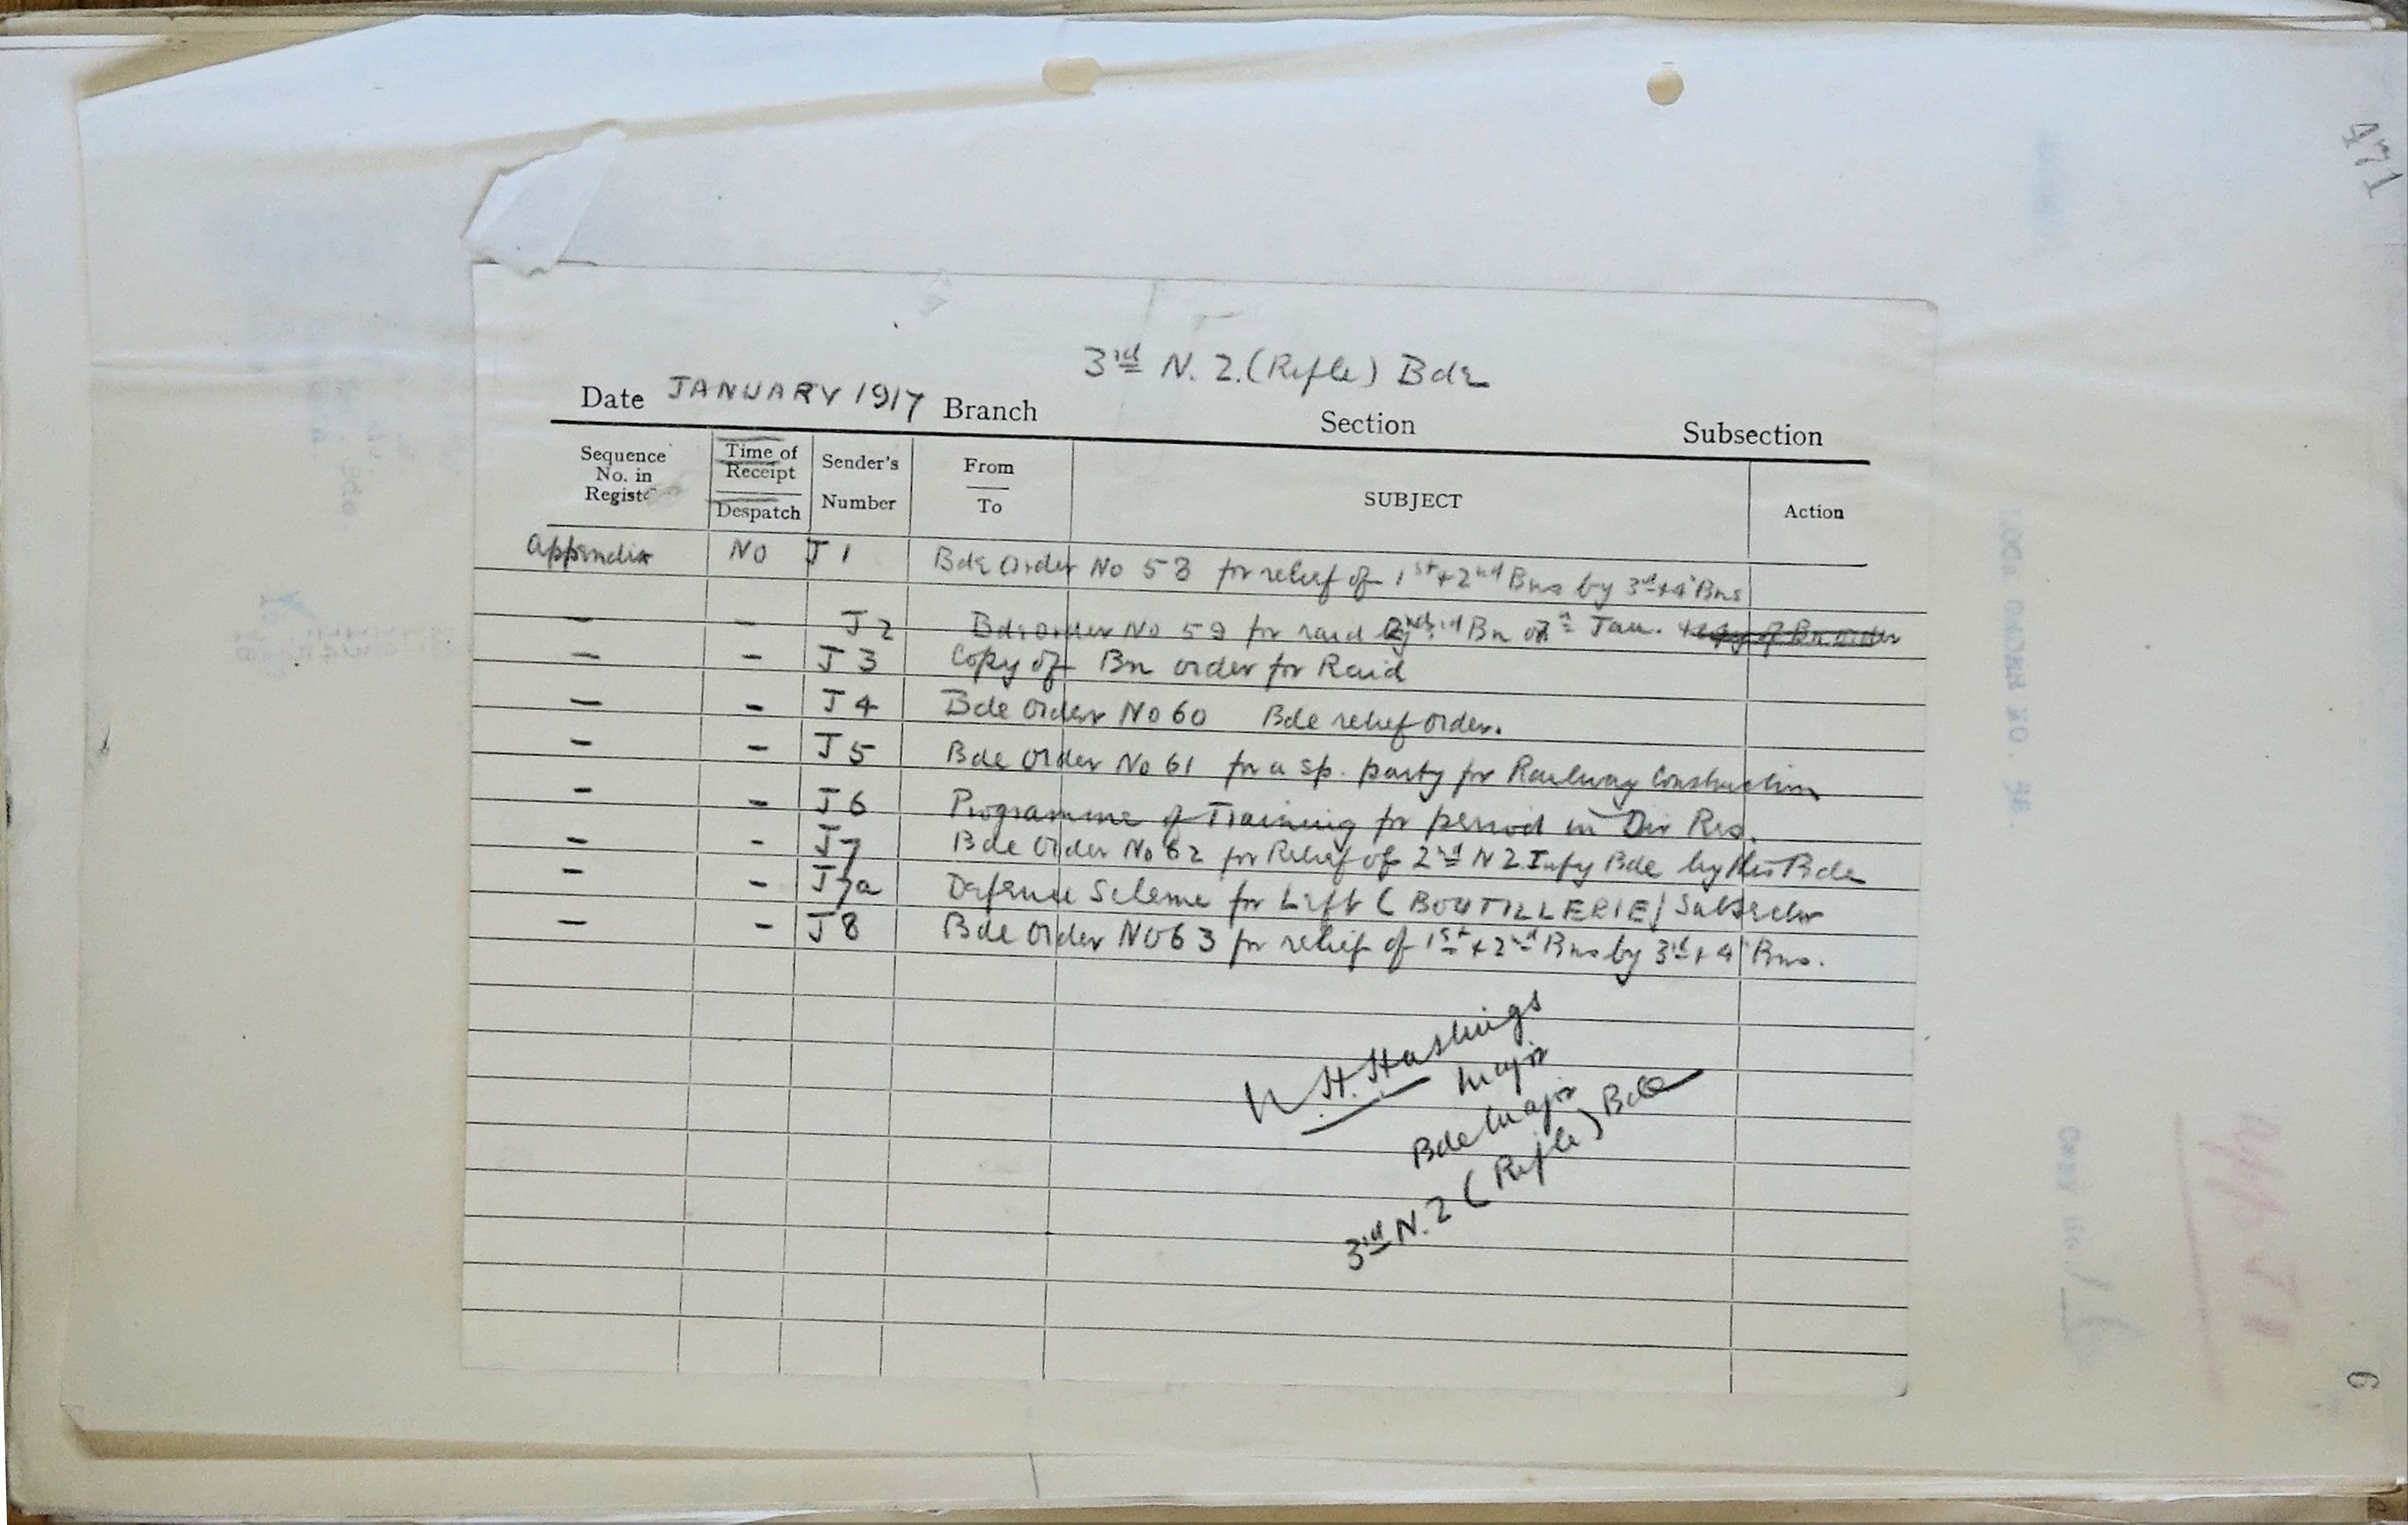 471
3rd N.Z. (Rifle) Bde
Date JANUARY 1917 Branch Section Subsection
Sequence No. in Time of Receipt Despatch Sender's Number From To SUBJECT Action
Appendix No J 1 Bde Order No 58 for relief of 1st + 2nd Bns by 3rd + 4 Bns
- - J 2 Bde order No 59 for raid by Bn on 7th Jan. + copy of Bn order
- - J 3 Copy of Bn order for Raid
- - J 4 Bde Order No 60 Bde relief order.
- - J 5 Bde Order No 61 for a sp. party for Railway Construction
- - J 6 Programme of Training for period in Div Res.
- - J 7 Bde Order No 62 for Relief of 2nd N Z Infy Bde by this Bde
- - J 7a Defence Scheme for Left (BOUTILLERIE) Subsector
- - J 8 Bde Order No 63 for relief of 1st + 2nd Bns by 3rd + 4 Bns.
W.H. Hastings
Major
Bde Major
3rd N.Z (Rifle) Bde
6